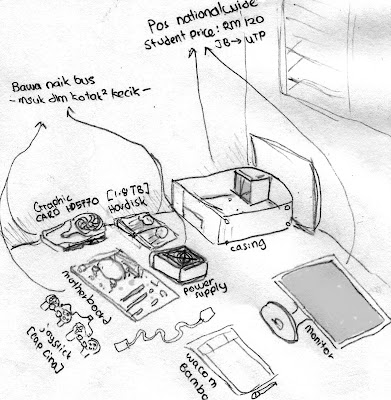 Pos nationalwide
Student price : RM 120
JB → UTP
Bawa naik bus
- msuk dlm kotak² kecik -
Graphic
CARD HD5770
[1.8 TB]
Hardisk
casing
power
supply
motherboard
joystick
[cap Cina]
wacom
Bamboo
monitor